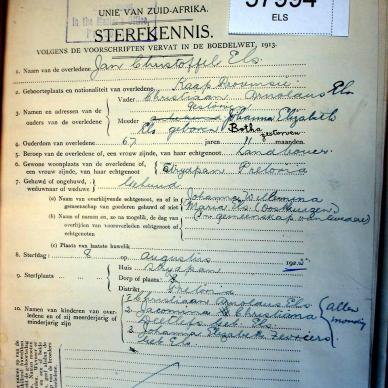 57594
ELS
UNIE VAN ZUID-AFRIKA.
In the
STERFKENNIS.
VOLGENS DE VOORSCHRIFTEN VERVAT IN DE BOEDELWET, 1913.
1. Naam van de overledene Jan Christoffel Els.
2. Geboorteplaats en nationaliteit van overledene Kaap Provinsie
3. Namen en adressen van de ouders van de overledene
Vader Christiaan Arnolaus Els
gestorven
Moeder Johanna Elizabeth
Els geboren Botha gestorven
4. Ouderdom van overledene 67 jaren 11 maanden.
5. Beroep van de overledene of, een vrouw zijnde, van haar echtgenoot Landbouer
6. Gewone woonplaats van de overledene of, een vrouw zijnde, van haar echtgenoot Pretoria
7. Gehuwd of ongehuwd, weduwnaar of weduwe Gehuud
(a) Naam van overblijvende echtgenoot, en of in gemeenschap van goederen gehuwd of niet Johanna Willemina
Maria Els (Oosthuizen)
(In gemeenskap
(b) Naam of namen, en zo mogelik, de dag van overlijden van vooroverleden echtgenoot of echtgenoten
(c) Plaats van laatste huwelik
8. Sterfdag 8 op Augustus 192
9. Sterfplaats
Huis
Dorp of plaats
Distrikt Pretoria
10. Namen van kinderen van overledene en of zij meerderjarig of minderjarig zijn
1 Christiaan Arnolaus Els
2 Jacomina Christiana
geb. Els.
3 Johanna Elizabeth
geb Els.
alles
mondig